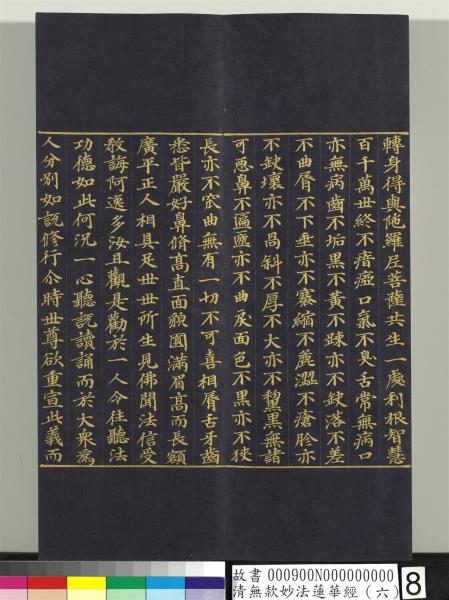 轉身得與陁羅尼菩薩共生一處利根智慧
百千萬世終不瘖瘂口氣不臭舌常無病口
亦無病齒不垢黑不黃不踈亦不缺落不差
不曲脣不下垂亦不褰縮不麁澀不瘡胗亦
不缺壞亦不喎斜不厚不大亦不黧黑無諸
可惡鼻不匾㔸亦不曲戾面色不黑亦不狹
長亦不窊曲無有一切不可喜相脣舌牙齒
悉皆嚴好鼻脩高直面貌圓滿眉高而長額
廣平正人相具足世世所生見佛聞法信受
教誨阿逸多汝且觀是勸於一人令往聽法
功德如此何況一心聽說讀誦而於大衆為
人分別如說修行尒時世尊欲重宣此義而
故書 000900N000000000
清無款妙法蓮華經（六） 8